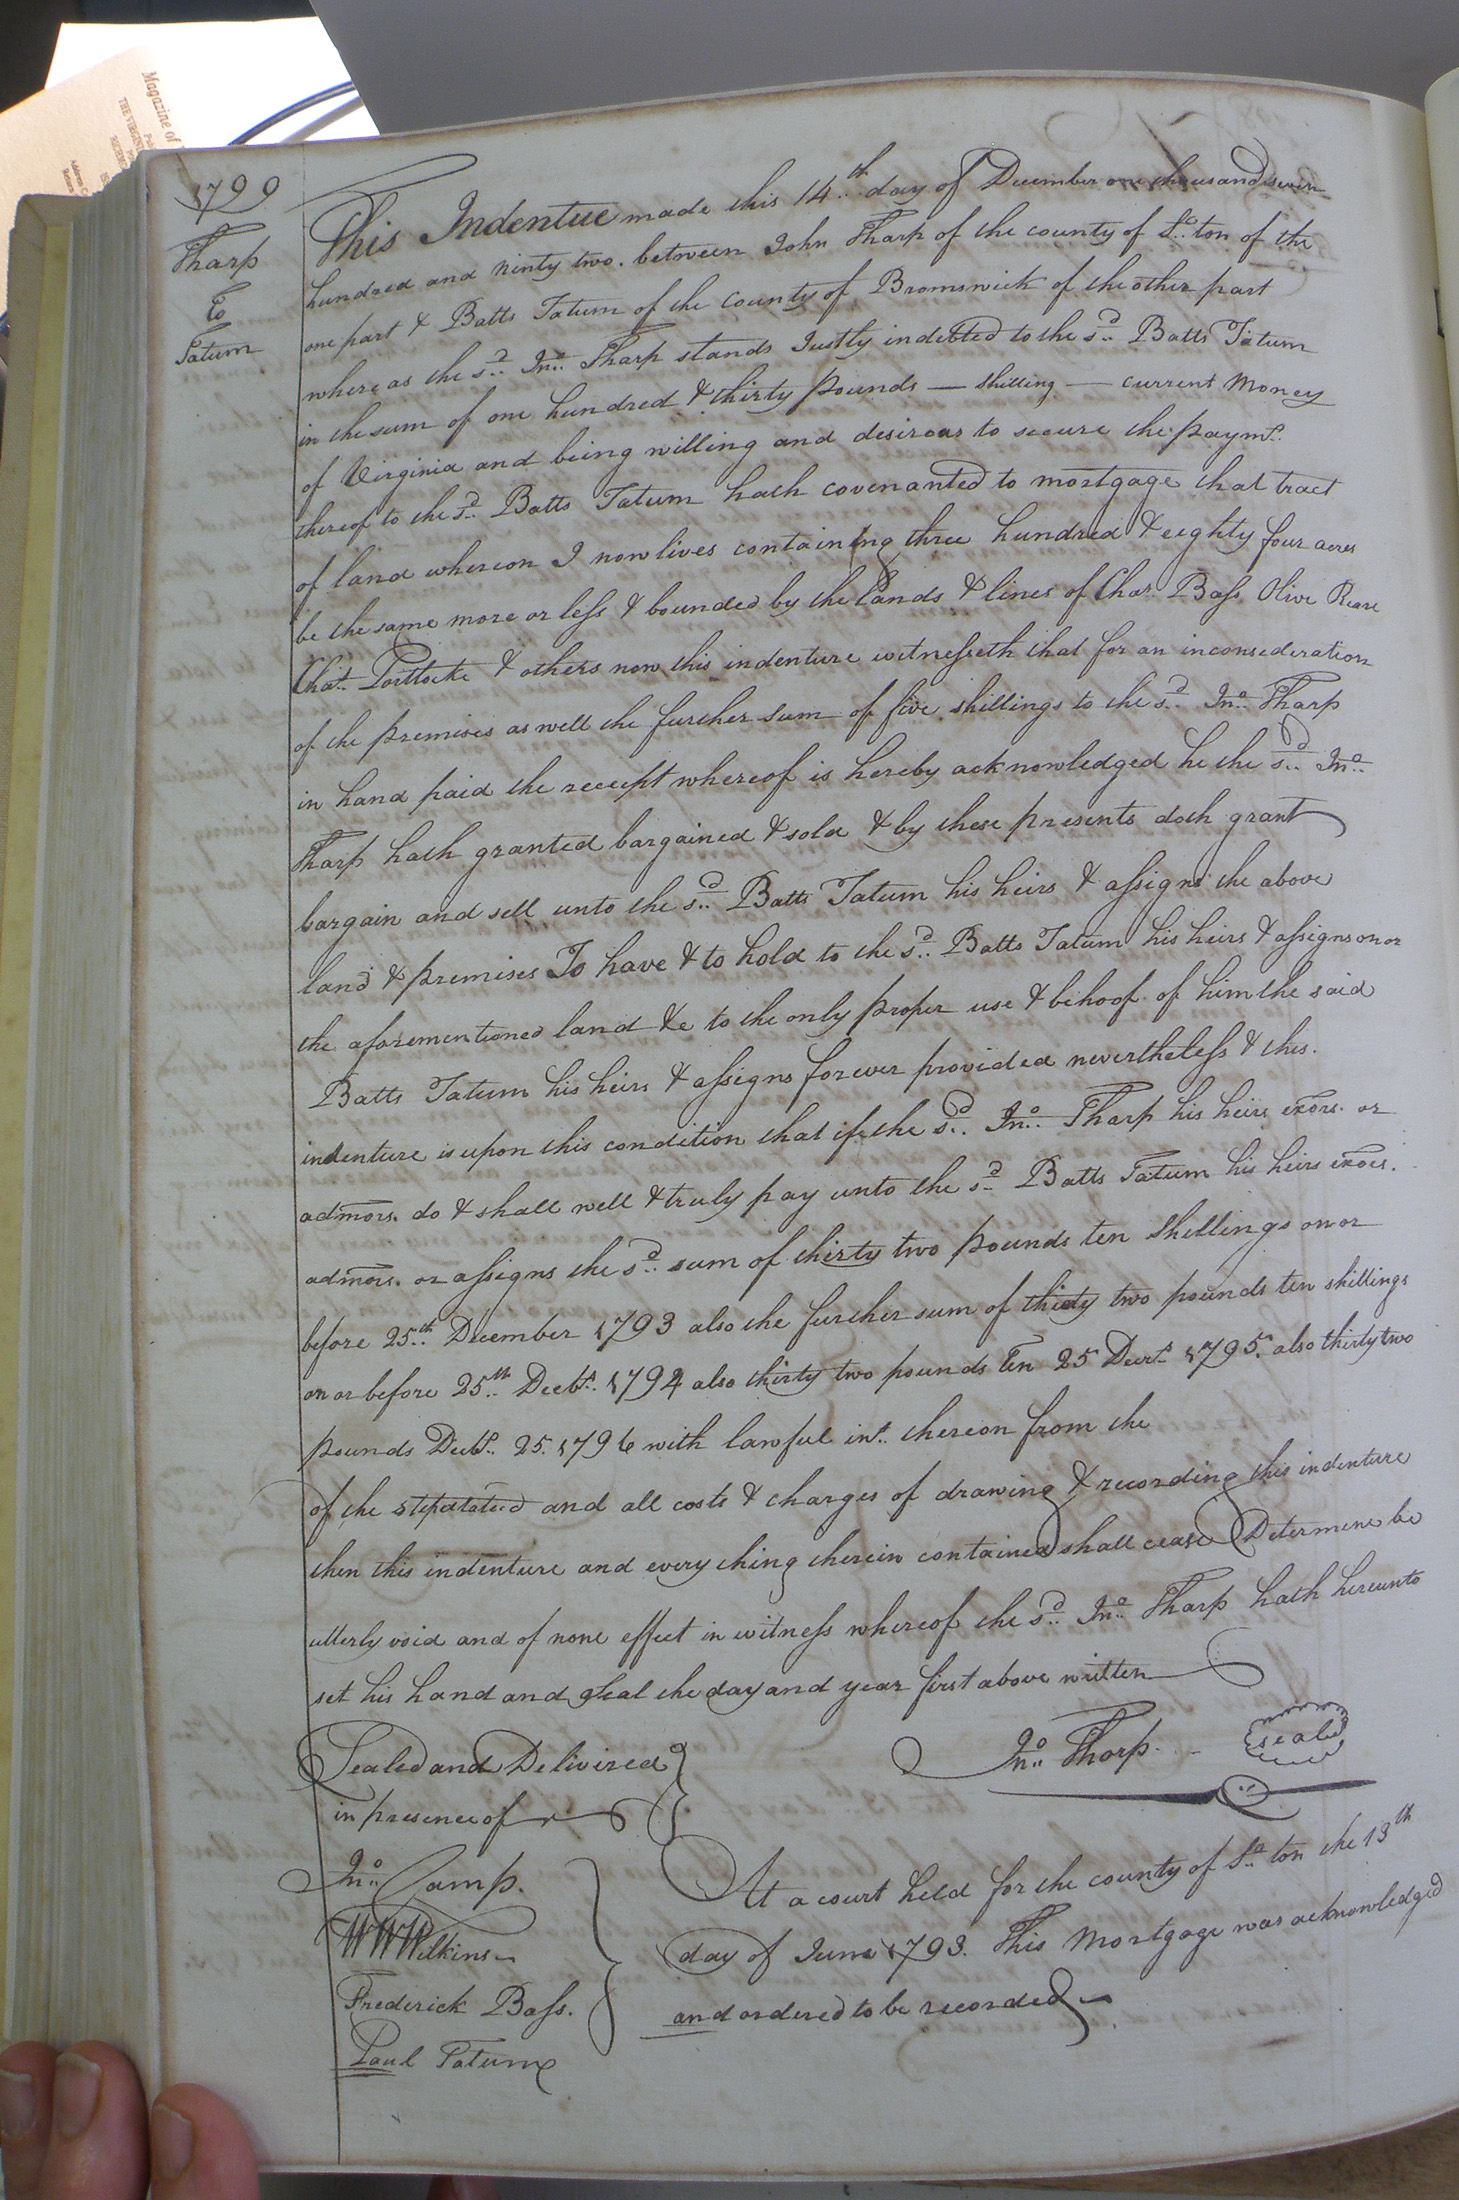 Magazine of
THE VIRGINI
1799
Tharp
To
Tatum
This Indentue made this 14th day of December one thousand seven
hundred and ninty two. between John Tharp of the county of So. ton of the
one part & Batts Tatum of the County of Bromswick of the other part
where as the sd. Jno. Tharp stands Justly indebted to the sd. Batts Tatum
in the sum of one hundred & thirty pounds — shilling — current Money
of Virginia and being willing and desirous to secure the paymt.
thereof to the sd. Batts Tatum hath covenanted to mortgage that tract
of land whereon I now lives containing three hundred & eighty four acres
be the same more or less & bounded by the lands & lines of Chas. Bass Olive
Portlocke & others now this indenture witnesseth that for an inconsederation
of the premises as well the further sum of five shillings to the sd. Jno. Tharp
in hand paid the receipt whereof is hereby acknowledged he the sd. Jno.
Tharp hath granted bargained & sold & by these presents doth grant
bargain and sell unto the sd. Batts Tatum his heirs & assigns the above
land & premises To have & to hold to the sd. Batts Tatum his heirs & assigns on or
the aforementioned land &c to the only proper use & behoof of him the said
Batts Tatum his heirs & assigns forever provided nevertheless & this
indenture is upon this condition that if the sd. Jno. Tharp his heirs exors. or
admors. do & shall well & truly pay unto the sd. Batts Tatum his heirs exors.
admors. or assigns the sd. sum of thirty two pounds ten Shillings on or
before 25th. December 1793 also the further sum of thirty two pounds ten shillings
on or before 25th Decbr. 1794 also thirty two pounds Ten 25 Decr. 1795. also thirty two
pounds Decbr. 25. 1796 with lawful int. thereon from the
of the stepatated and all costs & charges of drawing & recording this indenture
then this indenture and every thing therein contained shall cease Determine be
utterly void and of none effect in witness whereof the sd. Jno. Tharp hath hereunto
set his hand and seal the day and year first above written
Sealed and Delivired
in presence of
Jno. Tharp. seal
Jno. Camp.
WW Wilkins
Frederick Bass.
Paul Tatum
At a court held for the county of So. ton the 13th
day of June 1793. This Mortgage was acknowledged
and ordered to be recorded